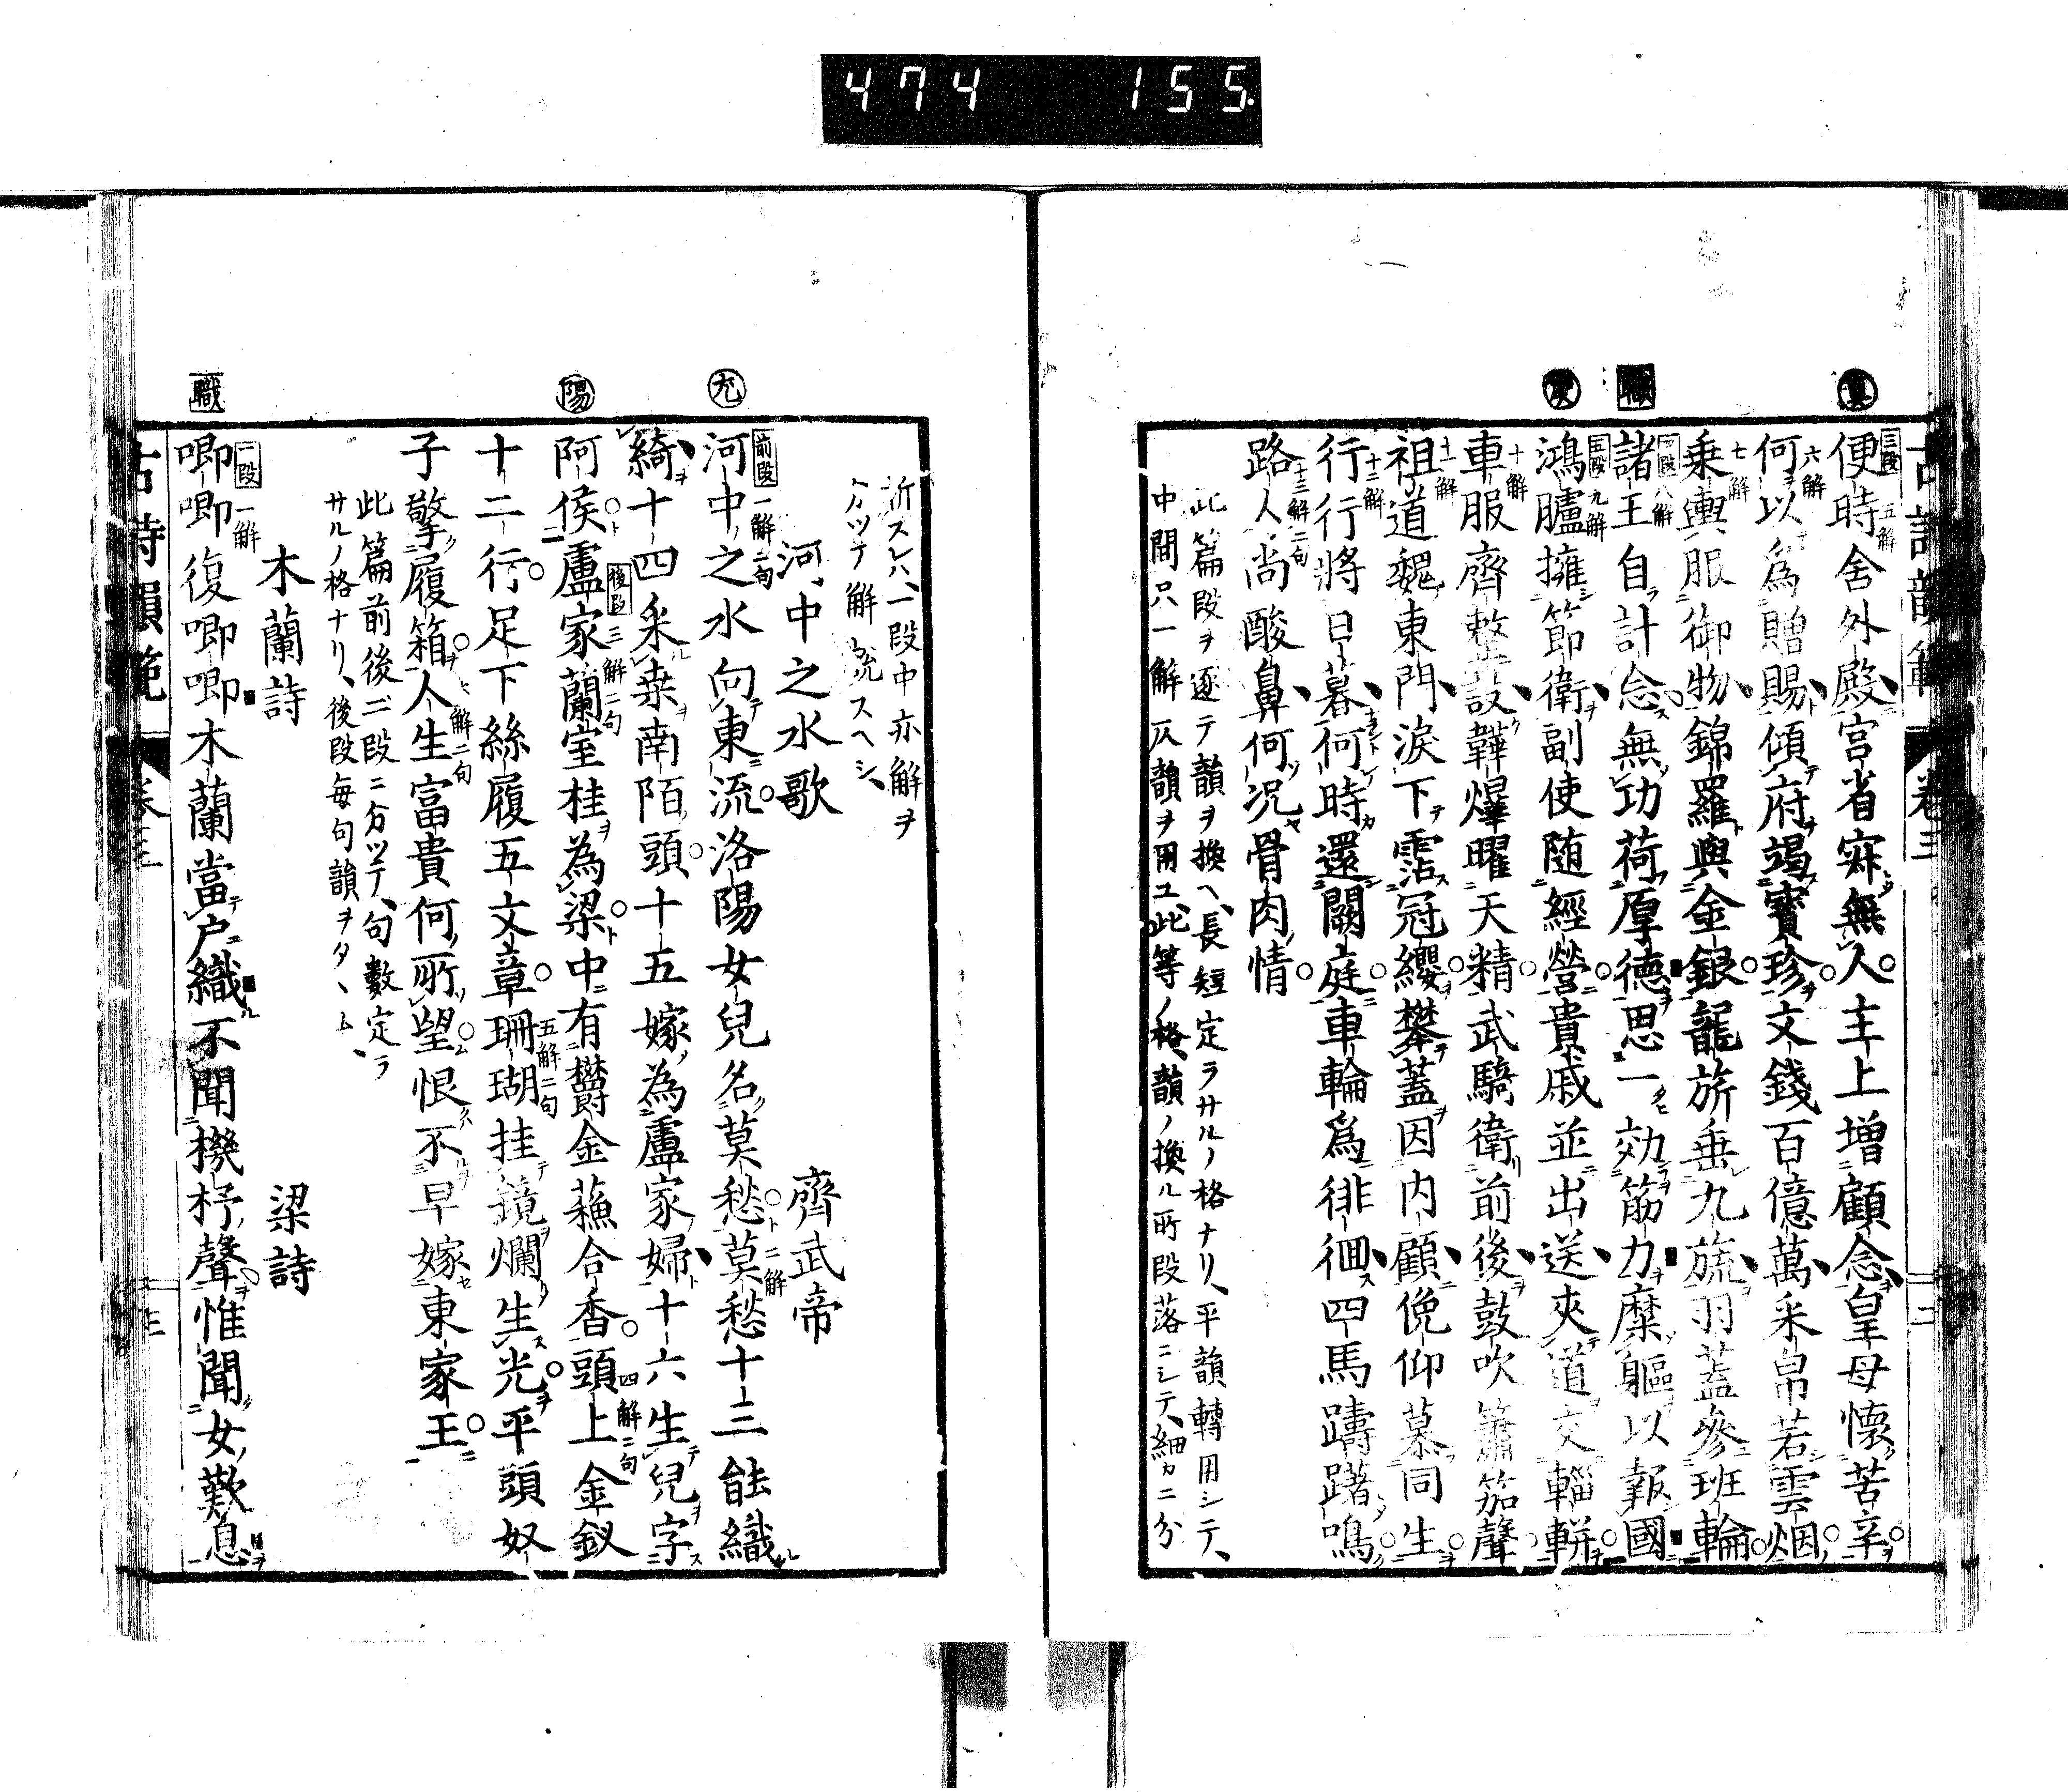 474 155.
古詩韻範 卷三
眞
職
庚
三段 五解
便時舍外殿宮省寂無人主上增顧念皇母懷苦辛
六解
何以爲贈賜傾府竭寶珍文錢百億萬采帛若雲烟
七解
乗輿服御物錦羅與金銀龍旂垂九旒羽蓋參班輪
八解
諸王自計念無功荷厚德思一効筋力糜軀以報國
五段 九解
鴻臚擁節衛副使随經營貴戚並出送夾道交輜軿
十解
車服齊整設韡爗曜天精武騎衛前後鼓吹簫笳聲
十一解
祖道魏東門淚下霑冠纓攀蓋因内顧俛仰慕同生
十二解
行行將日暮何時還闕庭車輪爲徘徊四馬躊躇鳴
十三解二句
路人尚酸鼻何况骨肉情
此篇段ヲ逐テ韻ヲ換ヘ、長短定ラサルノ格ナリ、平韻轉用シテ、
中間只一解仄韻ヲ用ユ、此等ノ格、韻ノ換ル所段落ニシテ、細カニ分
析スレハ、一段中亦解ヲ
分ツテ解流スヘシ、
尤
陽
職
河中之水歌 齊武帝
前段 一解二句 二解
河中之水向東流洛陽女兒名莫愁莫愁十三能織
綺十四采桒南陌頭十五嫁為盧家婦十六生兒字
後段 三解二句 四解二句
阿侯盧家蘭室桂為梁中有欝金蘓合香頭上金釵
五解二句
十二行足下絲履五文章珊瑚挂鏡爛生光平頭奴
六解二句
子擎履箱人生富貴何所望恨不早嫁東家王
此篇前後二段ニ分ツテ、句數定ラ
サルノ格ナリ、後段每句韻ヲタヽム、
木蘭詩 梁詩
一段 一解
唧唧復唧唧木蘭當户織不聞機杼聲惟聞女歎息
古詩韻範 卷三